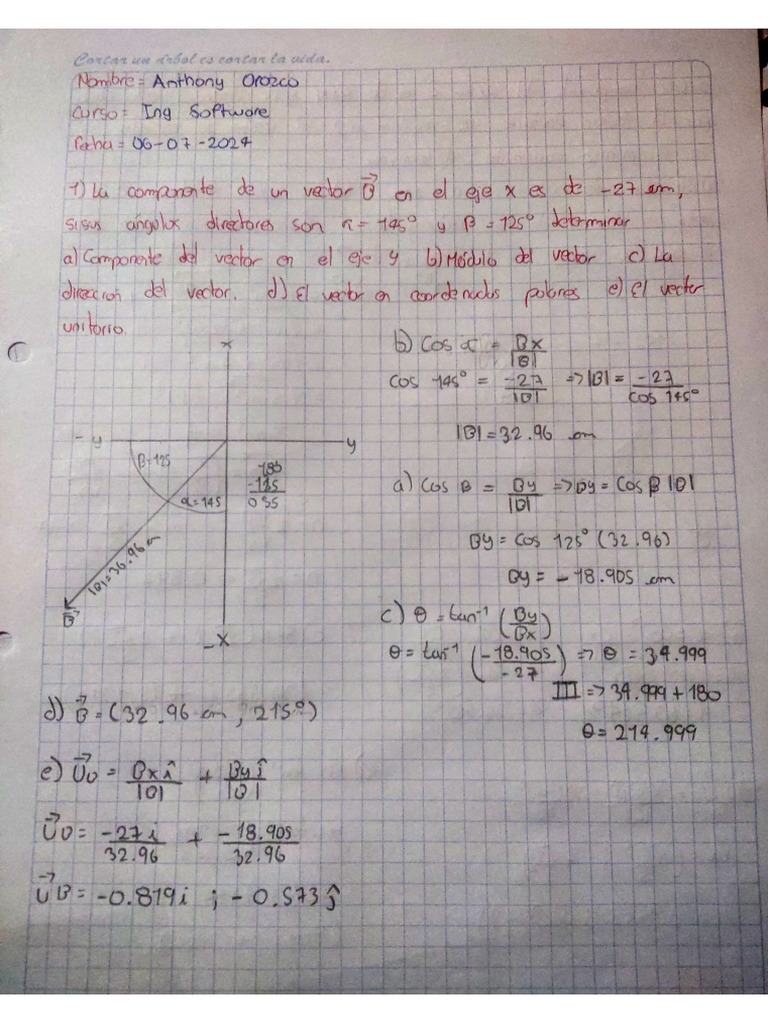 Cortar un árbol es cortar la vida.
Nombre = Anthony Orozco
Curso = Ing Software
Fecha = 06-07-2024
1) La componente de un vector B⃗ en el eje x es de -27 cm,
si sus angulos directores son α = 145° y β = 125° determinar
a) Componente del vector en el eje y b) Módulo del vector c) La
direccion del vector. d) El vector en coordenadas polares e) El vector
unitario.
x
-y
y
β=125
α=145
180
-125
055
|B|=36.96 cm
B⃗
-x
b) Cos α = Bx/|B|
cos 145° = -27/|B| => |B| = -27/cos 145°
|B| = 32.96 cm
a) Cos β = By/|B| => By = Cos β |B|
By = cos 125° (32.96)
By = -18.905 cm
c) θ = tan⁻¹ (By/Bx)
θ = tan⁻¹ (-18.905/-27) => θ = 34.999
III => 34.999 + 180
θ = 214.999
d) B⃗ = (32.96 cm, 215°)
e) U⃗B = Bx î/|B| + By ĵ/|B|
U⃗B = -27i/32.96 + -18.905/32.96
U⃗B = -0.819i ; -0.573ĵ